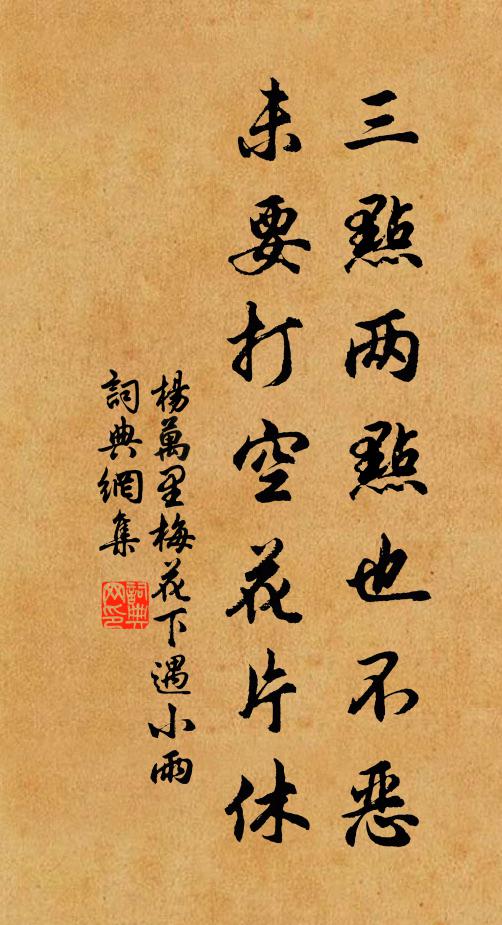 三點两點也不恶
未要打空花片休
楊萬里梅花下遇小雨
詞典網集
詞典网印